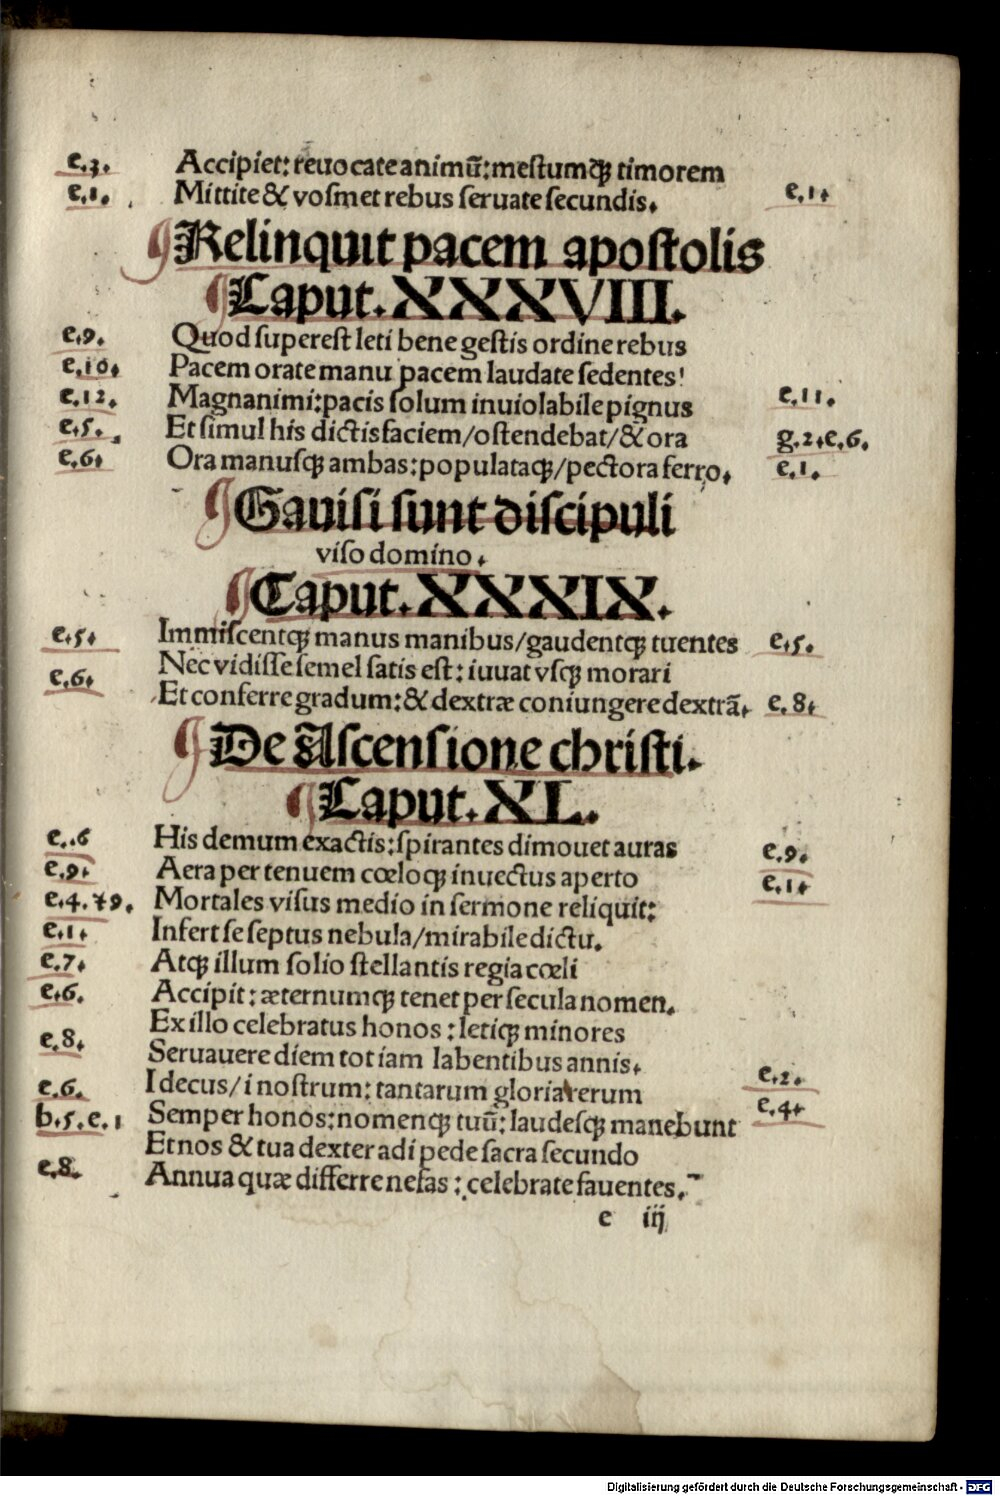 e.3. Accipiet: reuocate animū: mestumq̃ timorem
e.1. Mittite & vosmet rebus seruate secundis. e.1.
¶Relinquit pacem apostolis
¶Caput. XXXVIII.
e.9. Quod superest leti bene gestis ordine rebus
e.10. Pacem orate manu pacem laudate sedentes!
e.12. Magnanimi: pacis solum inuiolabile pignus e.11.
e.5. Et simul his dictis faciem/ostendebat/& ora g.2.e.6.
e.6. Ora manusq̃ ambas: populataq̃/pectora ferro. e.1.
¶Gauisi sunt discipuli
viso domino.
¶Caput. XXXIX.
e.5. Immiscentq̃ manus manibus/gaudentq̃ tuentes e.5.
e.6. Nec vidisse semel satis est: iuuat vsq̃ morari
Et conferre gradum: & dextræ coniungere dextrā. e.8.
¶De Ascensione christi.
¶Caput. XL.
e..6 His demum exactis: spirantes dimouet auras e.9.
e.9. Aera per tenuem cœloq̃ inuectus aperto e.1.
e.4.⁊9. Mortales visus medio in sermone reliquit:
e.1. Infert se septus nebula/mirabile dictu.
e.7. Atq̃ illum solio stellantis regia cœli
e.6. Accipit: æternumq̃ tenet per secula nomen.
Ex illo celebratus honos: letiq̃ minores
e.8. Seruauere diem tot iam labentibus annis.
e.6. I decus/i nostrum: tantarum gloria rerum e.2.
b.5.e.1 Semper honos: nomenq̃ tuū: laudesq̃ manebunt e.4.
Et nos & tua dexter adi pede sacra secundo
e.8. Annua quæ differre nefas: celebrate fauentes.
e iij
Digitalisierung gefördert durch die Deutsche Forschungsgemeinschaft - DFG